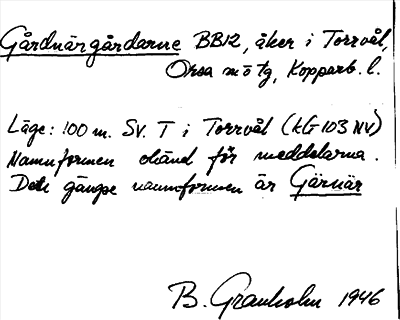 Gårdnärgårdarne BB12, åker i Torrvål,
Orsa sn o tg, Kopparb. l.
Läge: 100 m. SV. T i Torrvål (kG 103 NV)
Namnformen okänd för meddelarna.
Den gängse namnformen är Gärnär
B. Granholm 1946